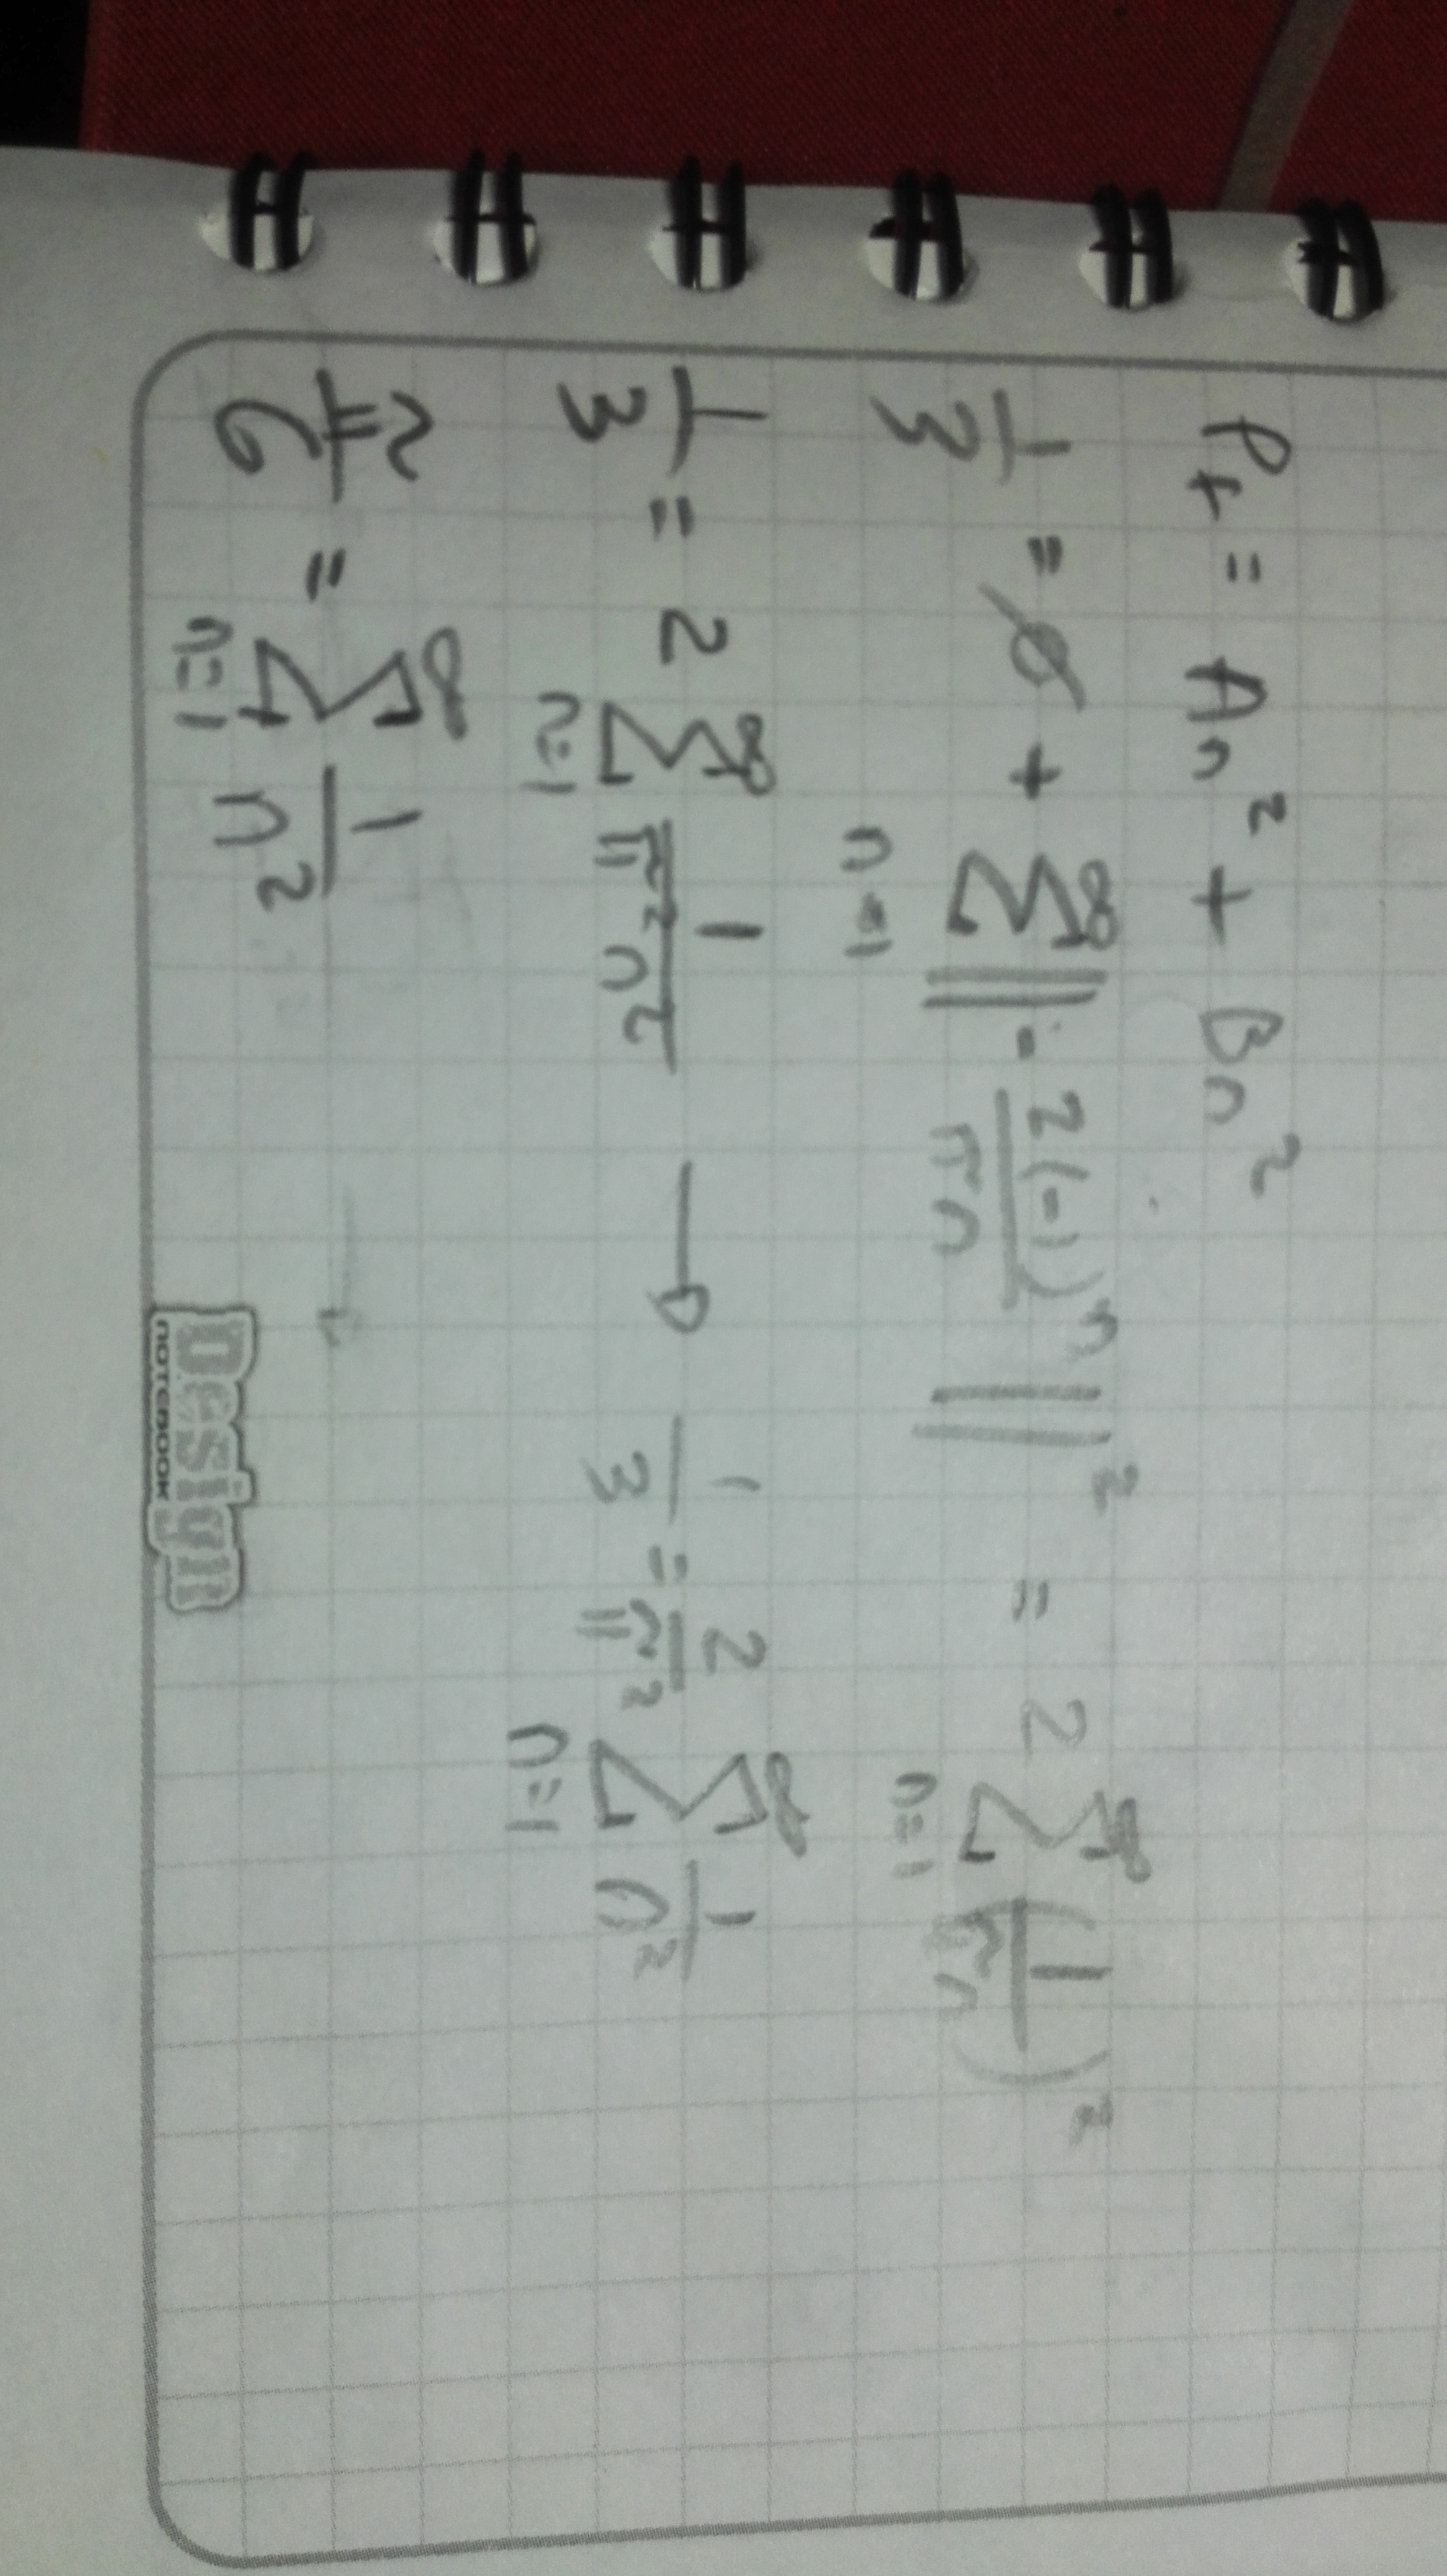 Pf = An² + Bn²
1/3 = ∅ + ∑_{n=1}^{∞} ||-2(-1)ⁿ/πn||² = 2 ∑_{n=1}^{∞} (1/πn)²
1/3 = 2 ∑_{n=1}^{∞} 1/π²n² → 1/3 = 2/π² ∑_{n=1}^{∞} 1/n²
π²/6 = ∑_{n=1}^{∞} 1/n²
Design
NOTEBOOK